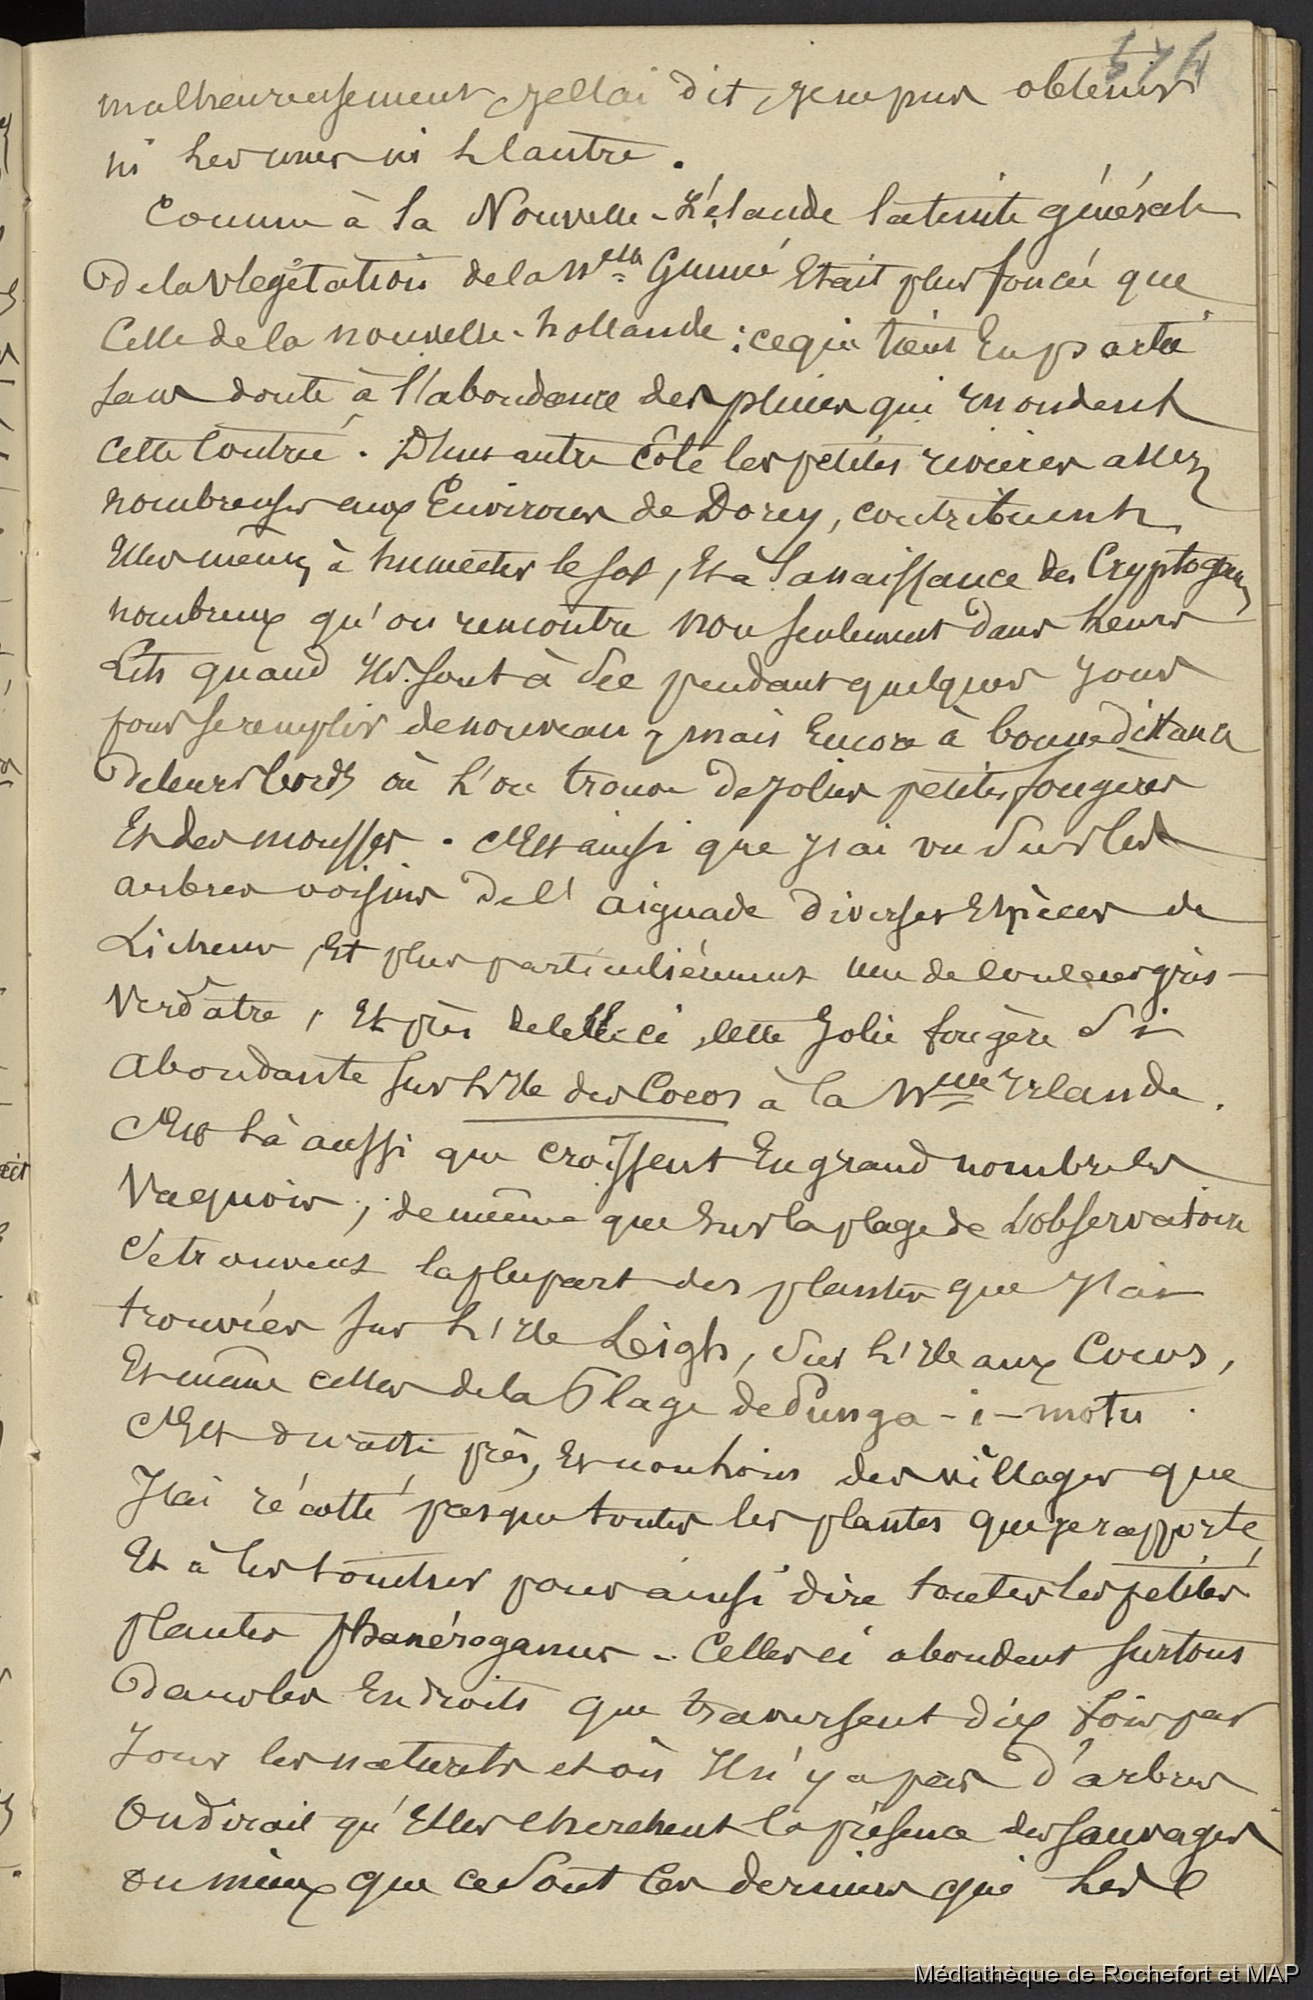 574
malheureusement, je l'ai dit, je ne pus obtenir
ni les unes ni l'autre.
Comme à la Nouvelle-Zélande la teinte générale
de la végétation de la Nelle Guinée était plus foncée que
celle de la nouvelle-hollande ; ce qui tient en partie
sans doute à l'abondance des pluies qui inondent
cette contrée. D'un autre côté les petites rivières assez
nombreuses aux Environs de Dorey, contribuent
elles mêmes à humecter le sol, et à la naissance des Cryptogames
nombreux qu'on rencontre non seulement dans leurs
lits quand ils sont à sec pendant quelques jours
pour se remplir de nouveau, mais encore à bonne distance
de leurs bords où l'on trouve de jolies petites fougères
et des mousses. C'est ainsi que j'ai vu sur les
arbres voisins de l'aiguade diverses Espèces de
Lichens, et plus particulièrement une de couleur gris-
verdâtre, et près de celle ci, cette jolie fougère si
abondante sur l'île des Cocos à la Nlle Irlande.
C'est là aussi que croissent en grand nombre les
Vaquois ; de même que sur la plage de l'observatoire
se trouvent la plupart des plantes que j'ai
trouvées sur l'île Leigh, sur l'île aux Cocos,
et même celles de la Plage de Punga-i-motu.
C'est aussi près, et non loin des villages que
J'ai récolté presque toutes les plantes que je rapporte,
et à les pour ainsi dire toutes les petites
plantes phanérogames. Celles ci abondent surtout
dans les Endroits que traversent dix fois par
jour les naturels et où il n'y a pas d'arbres
on dirait qu'elles cherchent la présence des sauvages
ou mieux que ce sont ces derniers qui les
Médiathèque de Rochefort et MAP